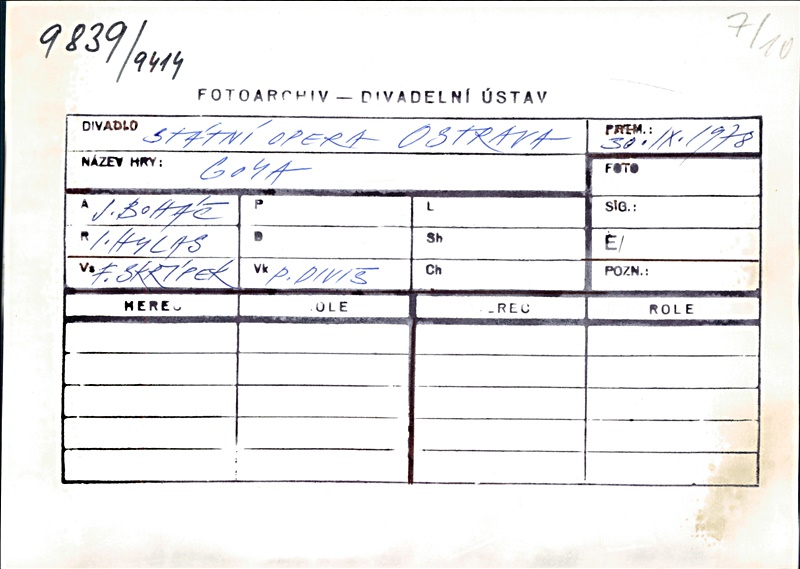 9839/9414
7/10
FOTOARCHIV — DIVADELNÍ ÚSTAV
DIVADLO STÁTNÍ OPERA OSTRAVA PREM.: 30.IX.1978
NÁZEV HRY: GOYA FOTO
A J.BOHÁČ P L SIG.:
R I.HYLAS Sh Č/
Vs F.SKŘÍPEK Vk P.DIVIŠ Ch POZN.:
HEREC ROLE HEREC ROLE